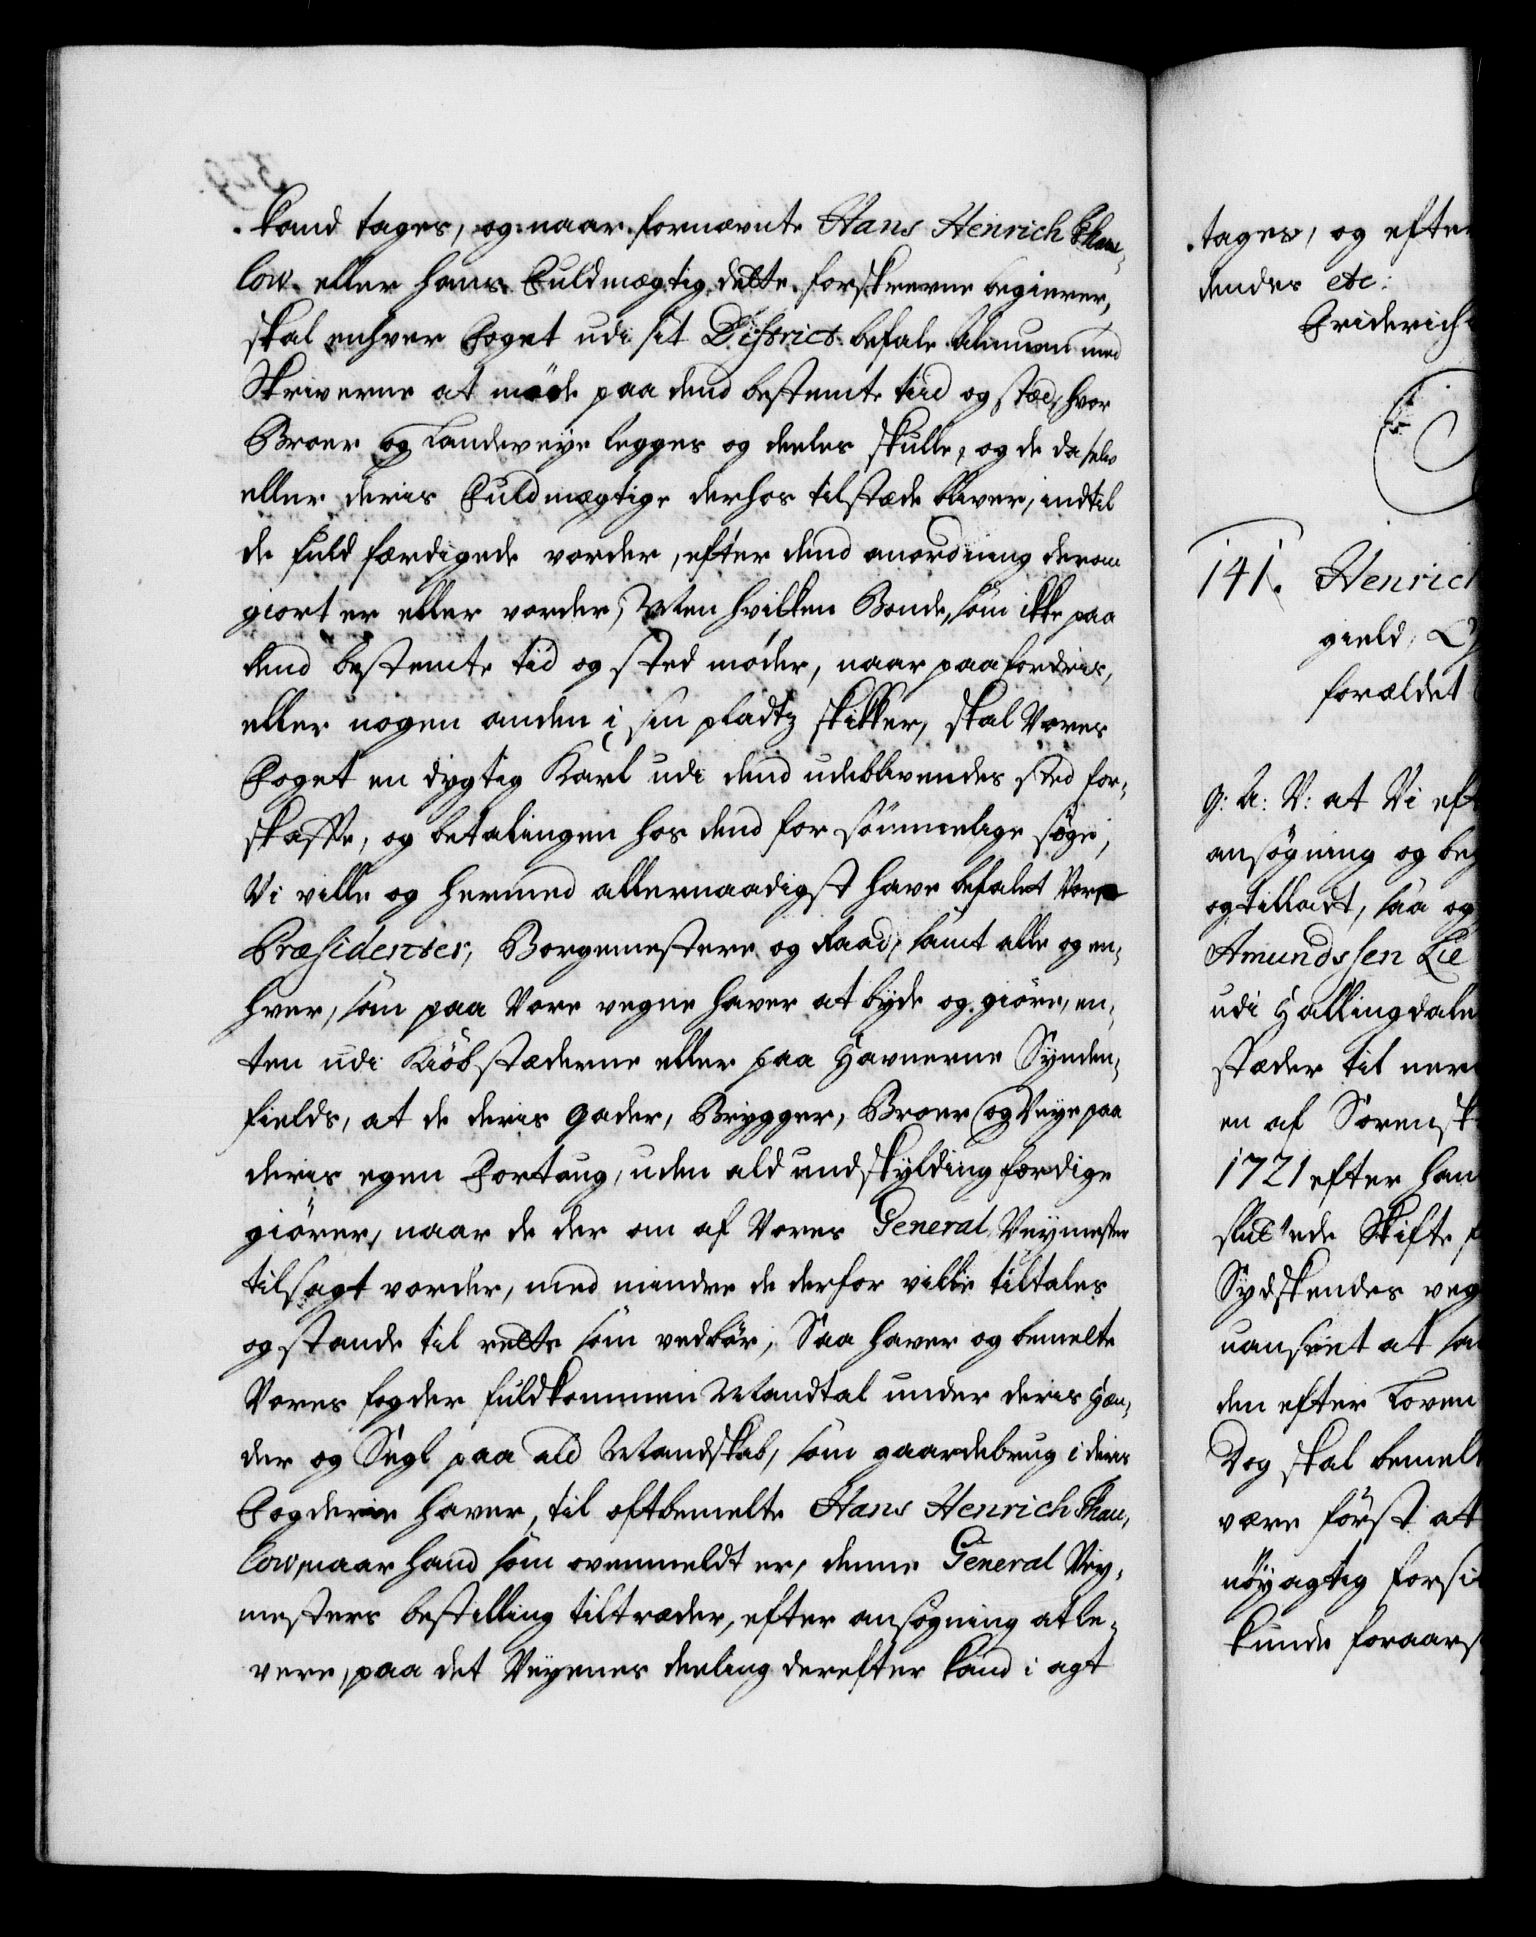 kand tages, og naar fornævnte Hans Henrich Thau-
low eller hans Fuldmægtig dette forskrevne begierer,
skal enhver Foget udi sit District befale Almuen med
Skriverne at møde paa dend bestemte tiid og stæd, hvor
Broer og Landeveye legges og deeles skulle, og de da selv
eller deris Fuldmægtige derhos tilstæde bliver, indtil
de fuld færdigede vorder, efter dend anordning derom
giort er eller vorder, Men hvilken Bonde, som ikke paa
dend bestemte tid og sted møder, naar paafordris,
eller nogen anden i sin pladtz skikker, skal Vores
Foget en dygtig Karl udi dend udeblivendes sted for-
skaffe, og betalingen hos dend forsømmelige søge,
Vi ville og hermed allernaadigst have befalet Vore
Præsidenter, Borgemestere og Raad, samt alle og en-
hver, som paa Vore vegne haver at byde og giøre, en-
ten udi Kiøbstæderne eller paa Havnerne Synden-
fields, at de deris Gader, Brygger, Broer og Veye paa
deris egen Fortaug, uden ald undskylding færdige
giører, naar de der om af Vores General Veymester
tilsagt vorder, med mindre de derfor ville tiltales
og stande til rette som vedbør, Saa haver og bemelte
Vores fogder fuldkommen Mandtal under deris Hæn-
der og Segl paa ald Mandskab, som gaardebrug i deris
Fogderie haver, til oftbemelte Hans Henrich Thau-
low, naar hand som ovenmeldt er, denne General Vey-
mesters bestilling tiltræder, efter ansøgning at le-
vere, paa det Veyenes deeling derefter kand i agt
tages, og efter
dendes etc:
Friderich
141. Henrich
gield,
forældet
G: A: V: at Vi eft
ansøgning og beg
og tilladt, saa og
Amundssen Lie
udi Hallingdale
stæder til
en af Sorensk
1721 efter han
sluttede Skifte
Sydskendes veg
uanseet at
den efter Loven
Dog skal bemelt
være først at
nøyagtig forsi
kunde foraars